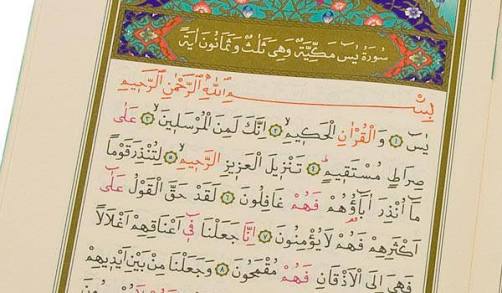 سُورَةُ يٰسۤ مَكِّيَّةٌ وَهِيَ ثَلٰثٌ وَثَمَانُونَ اٰيَةً
بِسْــــــمِ اللّٰهِ الرَّحْمٰنِ الرَّحٖيمِ
يٰسۤ ۝١ وَالْقُرْاٰنِ الْحَكٖيمِۙ ۝٢ اِنَّكَ لَمِنَ الْمُرْسَلٖينَۙ ۝٣ عَلٰى
صِرَاطٍ مُسْتَقٖيمٍؕ ۝٤ تَنْزٖيلَ الْعَزٖيزِ الرَّحٖيمِۙ ۝٥ لِتُنْذِرَ قَوْمًا
مَٓا اُنْذِرَ اٰبَٓاؤُ۬هُمْ فَهُمْ غَافِلُونَ ۝٦ لَقَدْ حَقَّ الْقَوْلُ عَلٰٓى
اَكْثَرِهِمْ فَهُمْ لَا يُؤْمِنُونَ ۝٧ اِنَّا جَعَلْنَا فٖٓي اَعْنَاقِهِمْ اَغْلَالًا
فَهِيَ اِلَى الْاَذْقَانِ فَهُمْ مُقْمَحُونَ ۝٨ وَجَعَلْنَا مِنْ بَيْنِ اَيْدٖيهِمْ